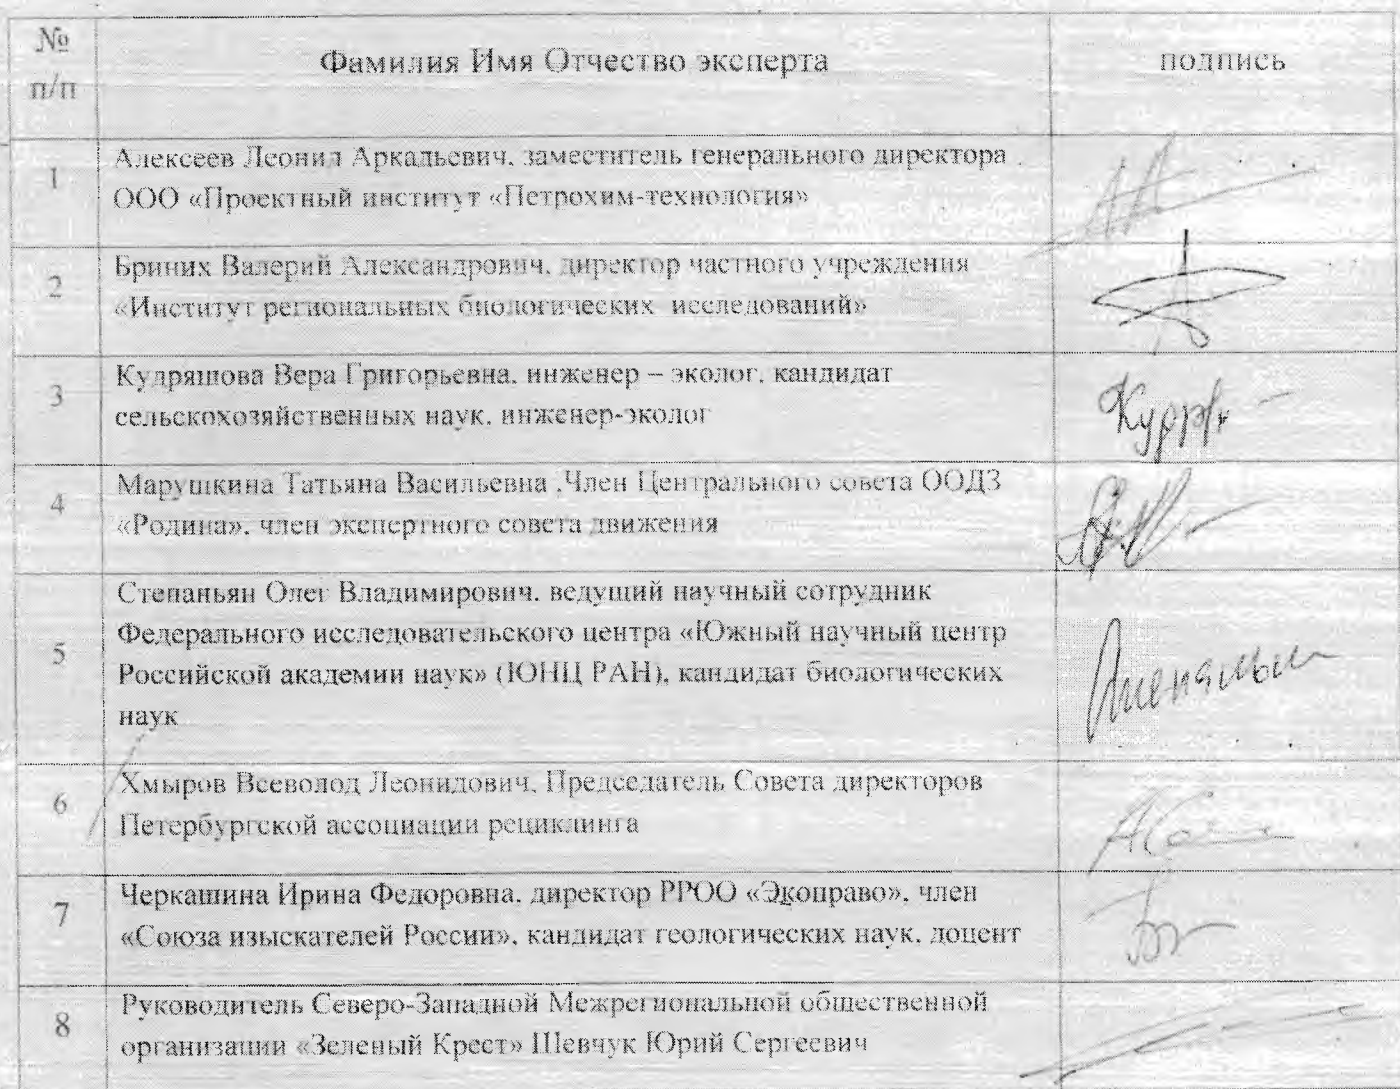 №
п/п
Фамилия Имя Отчество эксперта
подпись
1
Алексеев Леонид Аркадьевич, заместитель генерального директора
ООО «Проектный институт «Петрохим-технология»
2
Бриних Валерий Александрович, директор частного учреждения
«Институт региональных биологических исследований»
3
Кудряшова Вера Григорьевна, инженер – эколог, кандидат
сельскохозяйственных наук, инженер-эколог
4
Марушкина Татьяна Васильевна ,Член Центрального совета ООДЗ
«Родина», член экспертного совета движения
5
Степаньян Олег Владимирович, ведущий научный сотрудник
Федерального исследовательского центра «Южный научный центр
Российской академии наук» (ЮНЦ РАН), кандидат биологических
наук
6
Хмыров Всеволод Леонидович, Председатель Совета директоров
Петербургской ассоциации рециклинга
7
Черкашина Ирина Федоровна, директор РРОО «Экоправо», член
«Союза изыскателей России», кандидат геологических наук, доцент
8
Руководитель Северо-Западной Межрегиональной общественной
организации «Зеленый Крест» Шевчук Юрий Сергеевич